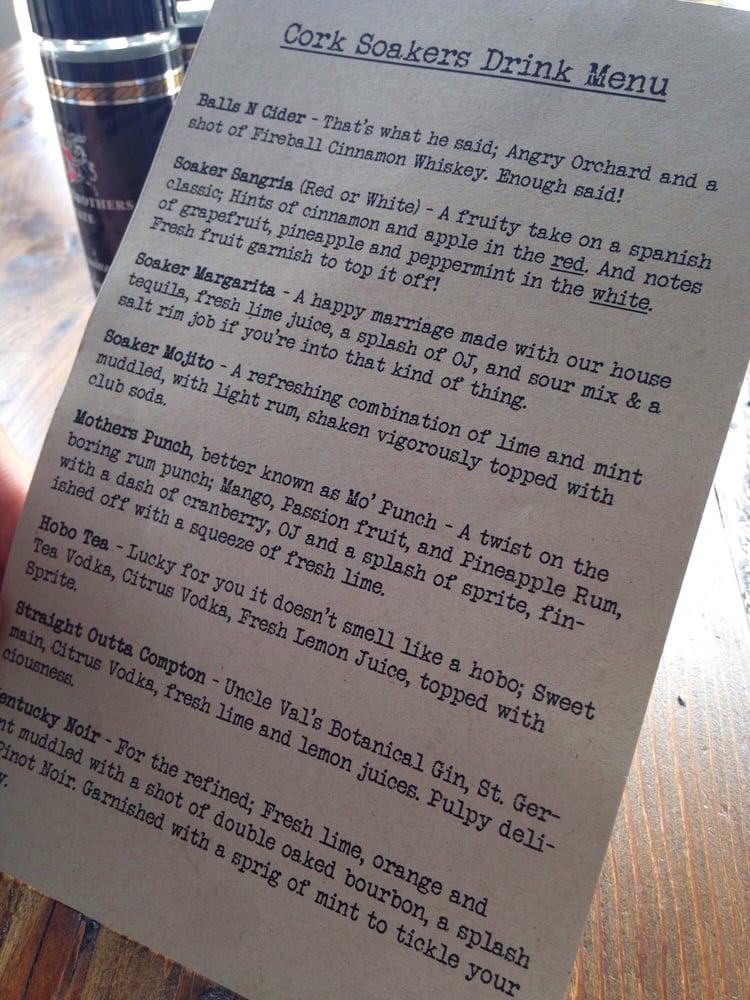 Cork Soakers Drink Menu
Balls N Cider - That's what he said; Angry Orchard and a
shot of Fireball Cinnamon Whiskey. Enough said!
Soaker Sangria (Red or White) - A fruity take on a spanish
classic; Hints of cinnamon and apple in the red. And notes
of grapefruit, pineapple and peppermint in the white.
Fresh fruit garnish to top it off!
Soaker Margarita - A happy marriage made with our house
tequila, fresh lime juice, a splash of OJ, and sour mix & a
salt rim job if you're into that kind of thing.
Soaker Mojito - A refreshing combination of lime and mint
muddled, with light rum, shaken vigorously topped with
club soda.
Mothers Punch, better known as Mo' Punch - A twist on the
boring rum punch; Mango, Passion fruit, and Pineapple Rum,
with a dash of cranberry, OJ and a splash of sprite, fin-
ished off with a squeeze of fresh lime.
Hobo Tea - Lucky for you it doesn't smell like a hobo; Sweet
Tea Vodka, Citrus Vodka, Fresh Lemon Juice, topped with
Sprite.
Straight Outta Compton - Uncle Val's Botanical Gin, St. Ger-
main, Citrus Vodka, fresh lime and lemon juices. Pulpy deli-
ciousness.
entucky Noir - For the refined; Fresh lime, orange and
nt muddled with a shot of double oaked bourbon, a splash
Pinot Noir. Garnished with a sprig of mint to tickle your
y.
OTHERS